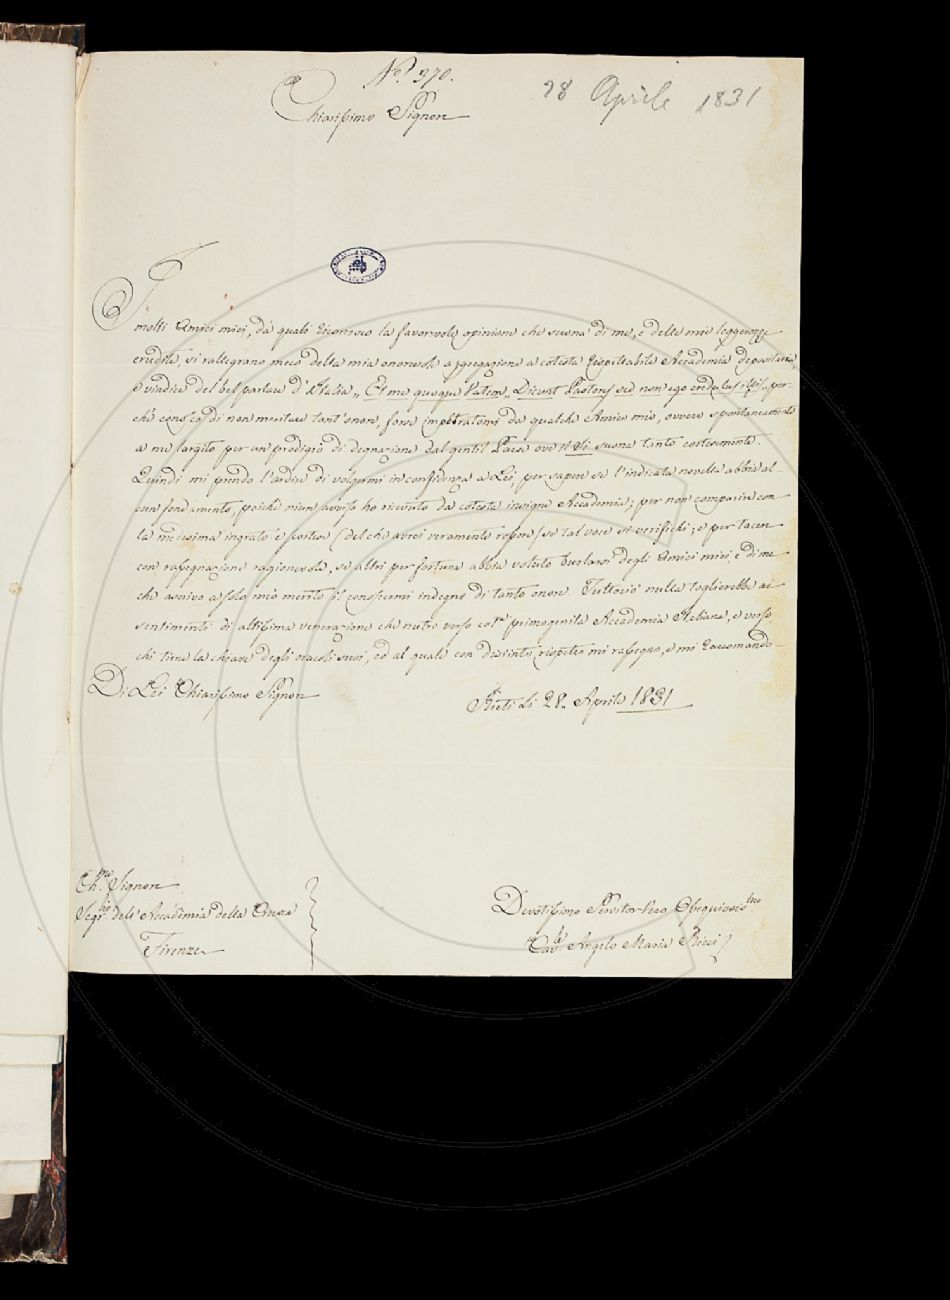 N.° 370.
28 Aprile 1831
Chiarissimo Signore
I
molti Amici miei, da' quali riconosco la favorevole opinione che suona di me, e delle mie leggerezze
erudite, si rallegrano meco della mia onorevole aggregazione a cotesta rispettabile Accademia depositaria,
e vindice del bel parlare d'Italia „ Et me quoque Vatem „ Dicunt Pastores sed non ego credulus illis, per-
chè conosco di non meritare tant'onore, forse impetratomi da qualche Amico mio, ovvero spontaneamente
a me largito per un prodigio di degnazione dal gentil Paese ove il Sì suona tanto cortesemente.
Quindi mi prendo l'ardire di volgermi in confidenza a Lei, per sapere se l'indicata novella abbia al-
cun fondamento, poichè niun avviso ho ricevuto da cotesta insigne Accademia; per non comparire con
la medesima ingrato e scortese (del che avrei veramente rossore) se tal voce si verifichi; e per tacere
con rassegnazione ragionevole, se altri per fortuna abbia voluto burlarsi degli Amici miei, e di me
che ascrivo a solo mio merito il conoscermi indegno di tanto onore. Tuttociò nulla toglierebbe ai
sentimenti di altissima venerazione che nutro verso cot.ta primogenita Accademia Italiana, e verso
chi tiene la chiave degli oracoli suoi, ed al quale con distinto rispetto mi rassegno, e mi raccomando
Di Lei Chiarissimo Signore
Rieti li 28. Aprile 1831
Ch.mo Signore
Segr.rio dell'Accademia della Crusca
Firenze
Devotissimo Servitor Vero Obsequiosis.mo
Cav.re Angelo Maria Ricci